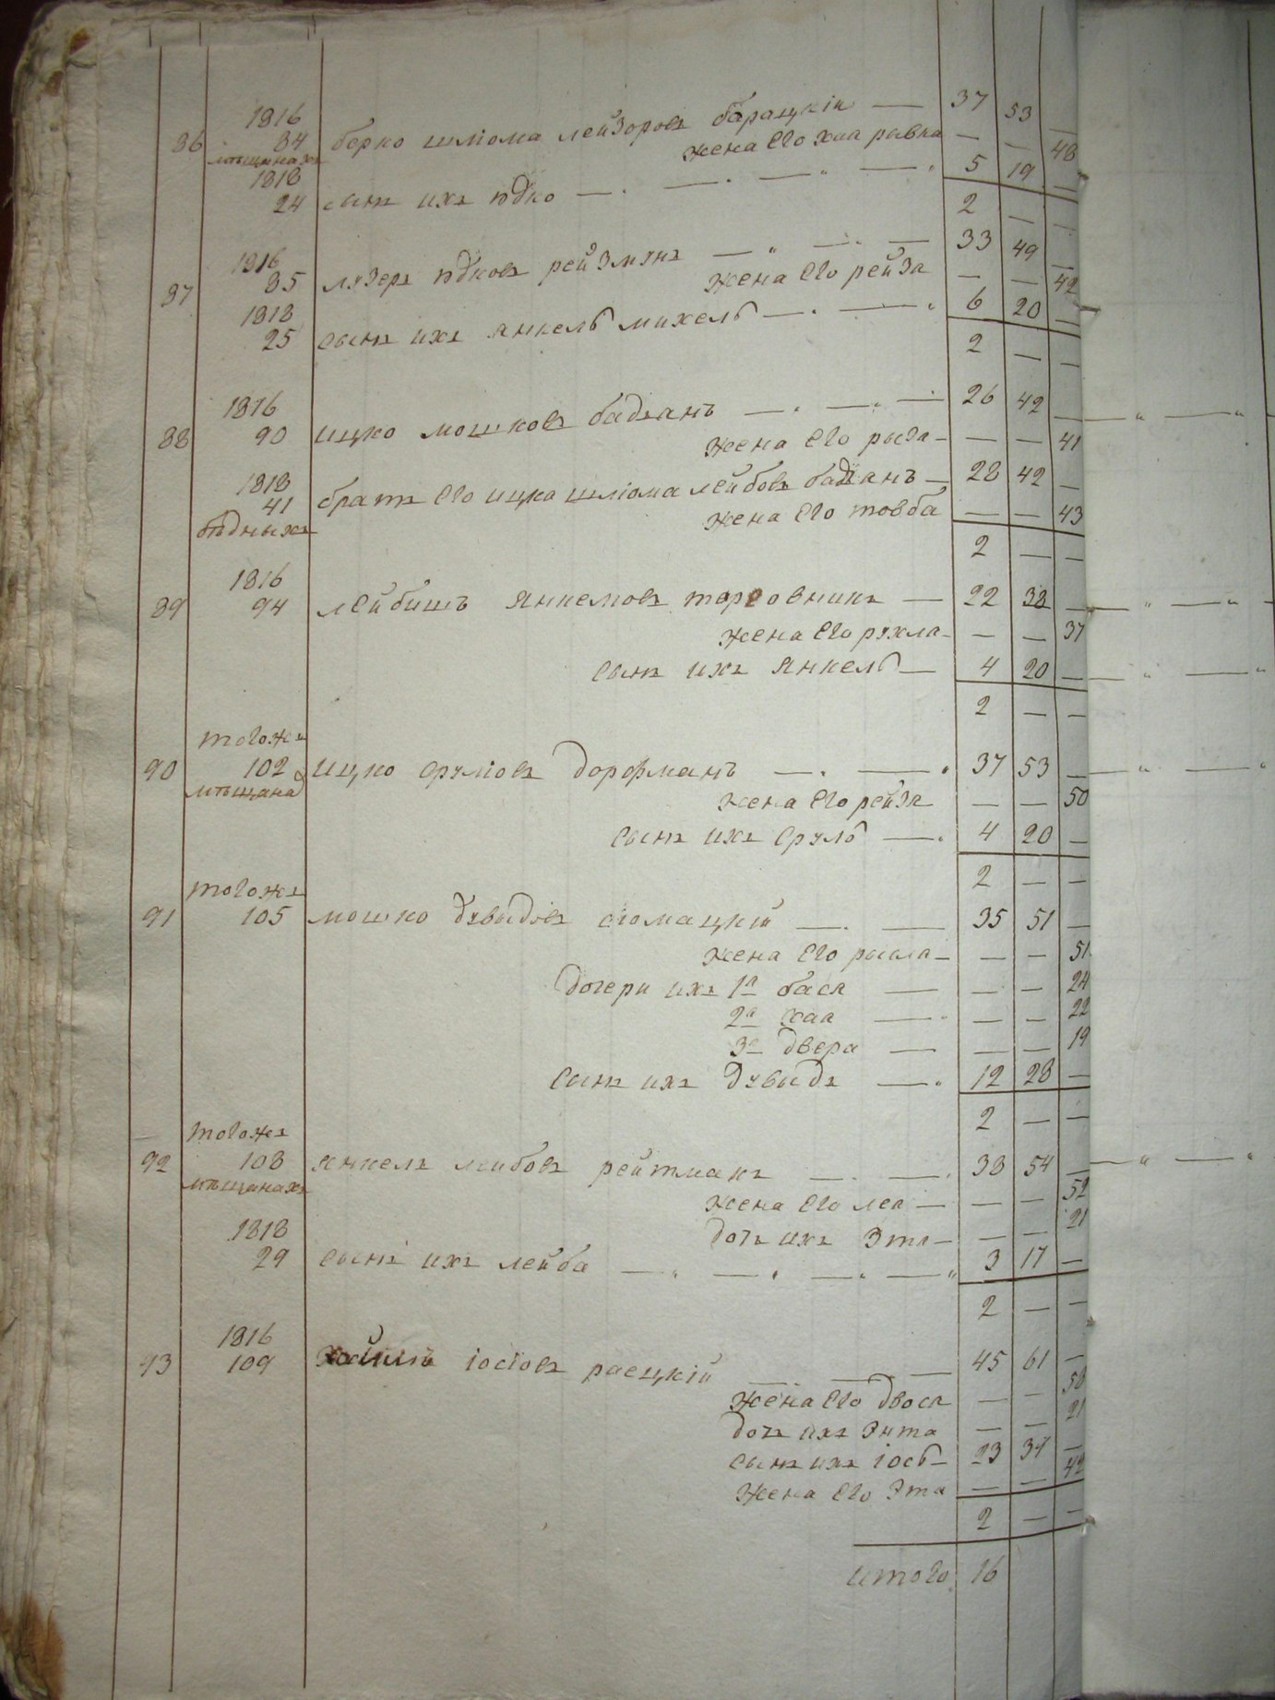 1816
86 84 берко шлiома лейзоровъ барацкiй — 37 53 —
мѣщанахъ жена его хая ривка — — 48
1818
24 сынъ ихъ юдко — 5 19 —
2 — —
1816
87 85 лязеръ юдковъ рейзманъ — 33 49 —
жена его рейза — — 42
1818
25 сынъ ихъ янкель михель — 6 20 —
2 — —
1816
88 90 ицко мошковъ бадханъ — 26 42 —
жена его рыза — — 41
1818
41 братъ его ицко шлiома лейбовъ бадханъ — 28 42 —
бѣдныхъ жена его товба — — 43
2 — —
1816
89 94 лейбишъ янкелювъ торговникъ — 22 38 —
жена его рухля — — 37
сынъ ихъ янкель — 4 20 —
2 — —
тогожъ
90 102 ицко срулiовъ дорфманъ — 37 53 —
мѣщана жена его рейза — — 50
сынъ ихъ сруль — 4 20 —
2 — —
тогожъ
91 105 мошко дувидовъ сломацкiй — 35 51 —
жена его рыкля — — 51
дочери ихъ 1я бася — — — 24
2я хая — — — 22
3я двера — — — 19
сынъ ихъ дувидъ — 12 28 —
2 — —
тогожъ
92 108 янкель лейбовъ рейтманъ — 38 54 —
мѣщанахъ жена его лея — — — 52
1818 дочь ихъ Этл — — — 21
29 сынъ ихъ лейба — 3 17 —
2 — —
1816
93 109 iосiовъ расцкiй — 45 61 —
жена его двося — — 58
дочь ихъ Энта — — 21
сынъ ихъ iось — 23 37 —
жена его Эта — — 42
2 — —
итого 16